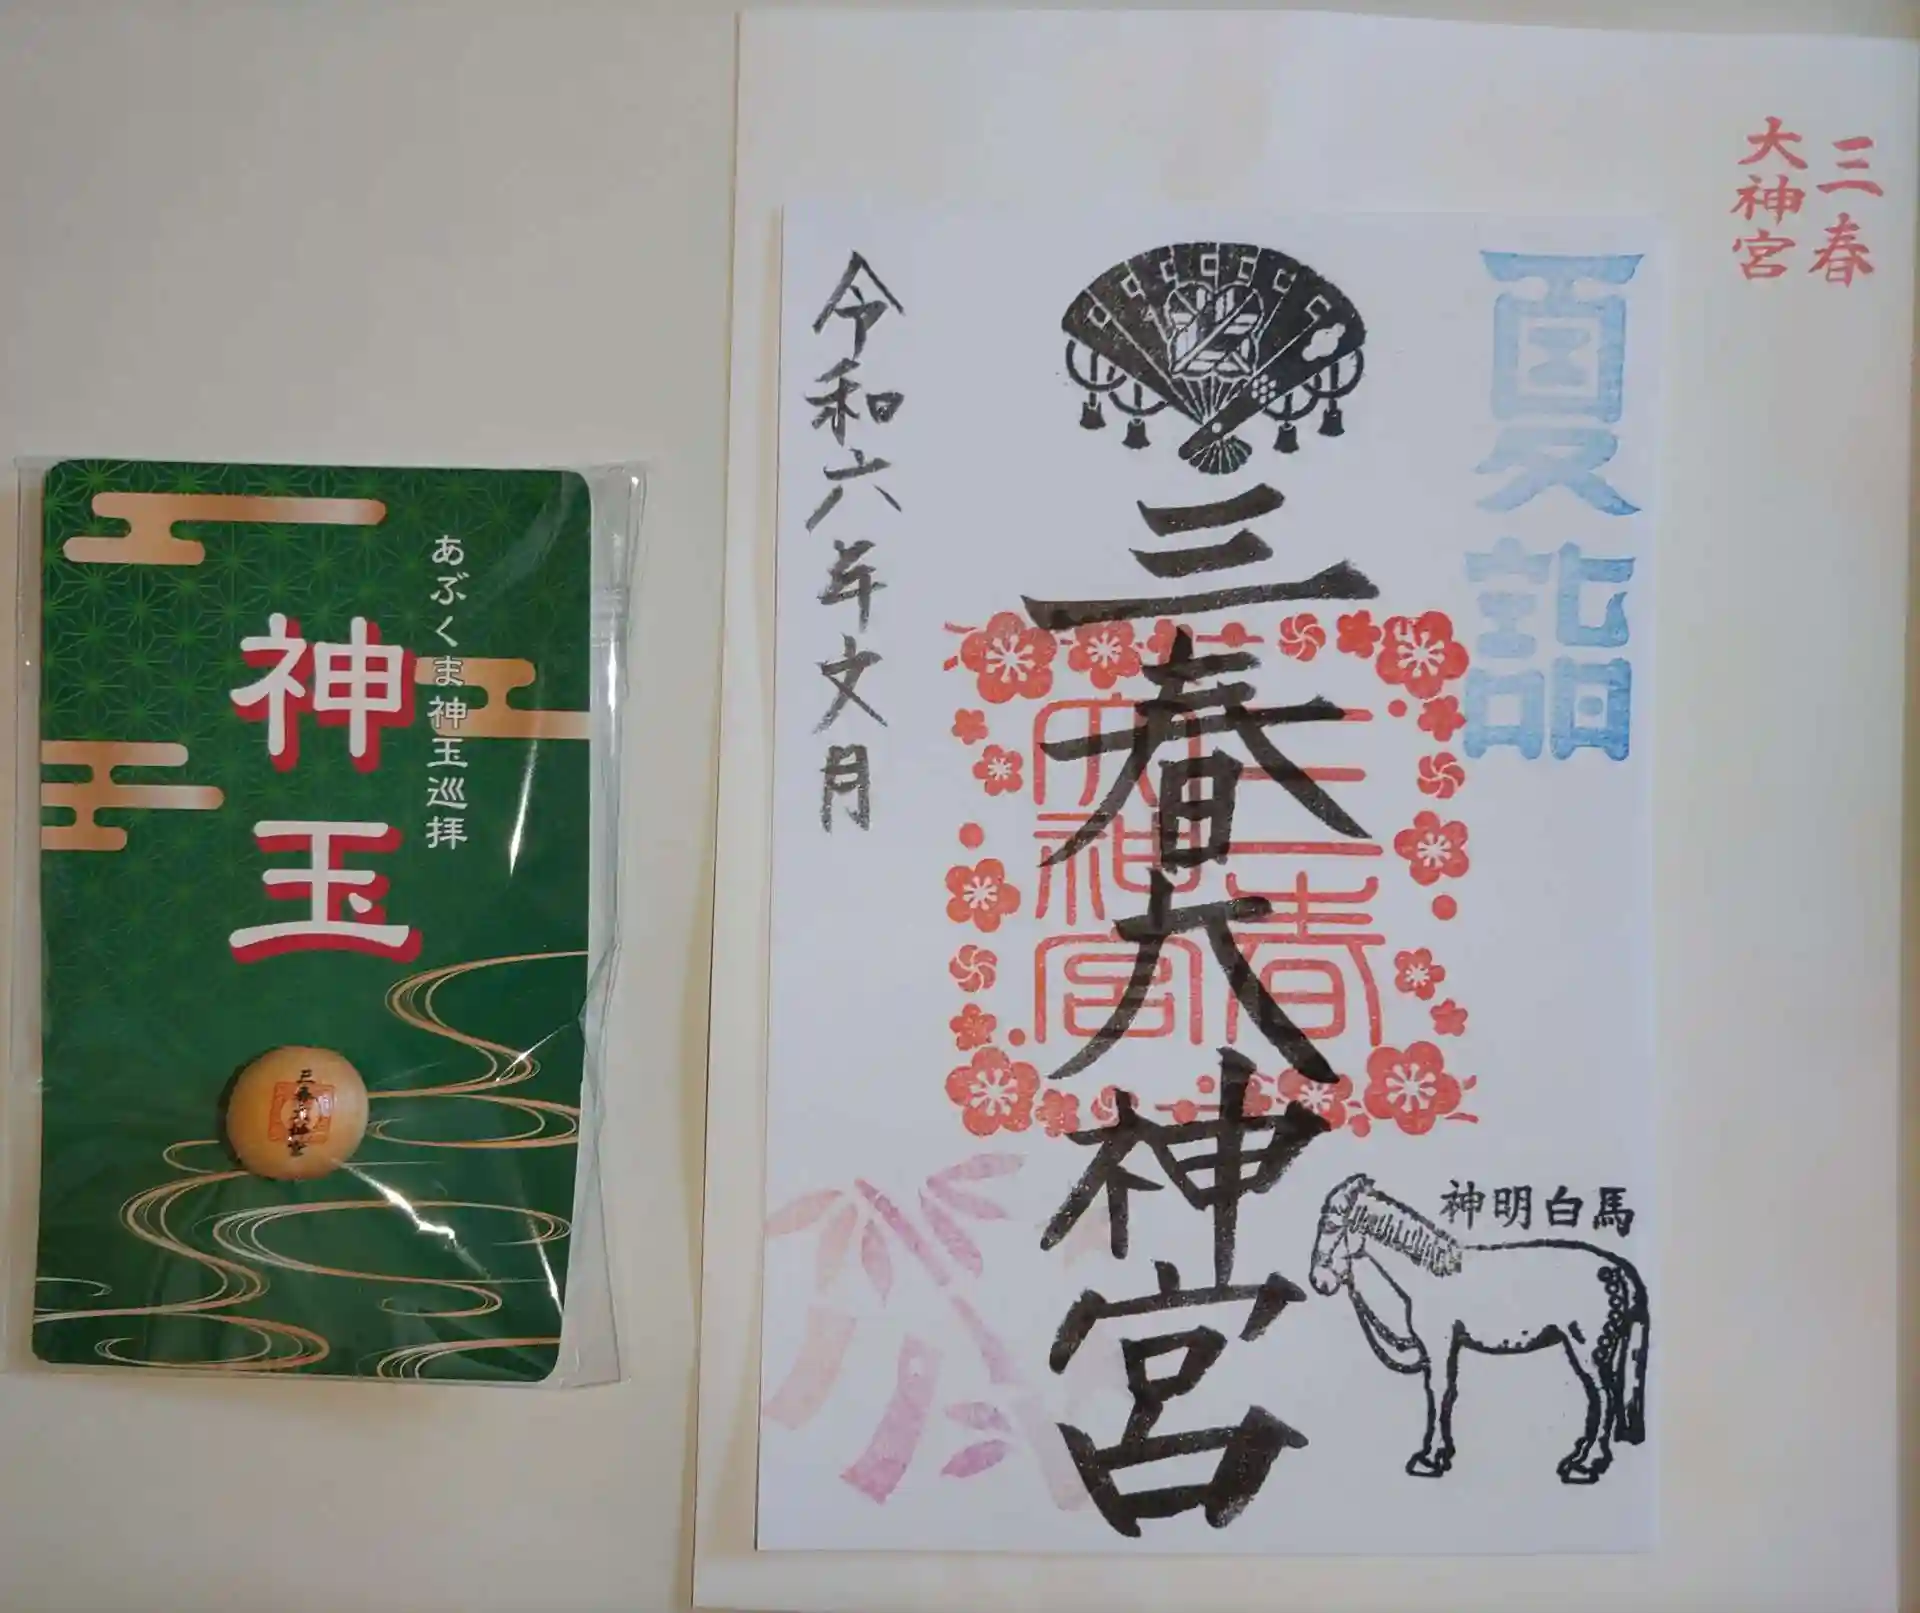 三春
大神宮
夏詣
三春大神宮
三春
大神宮
神明白馬
令和六年文月
あぶくま神玉巡拝
神玉
三春大神宮